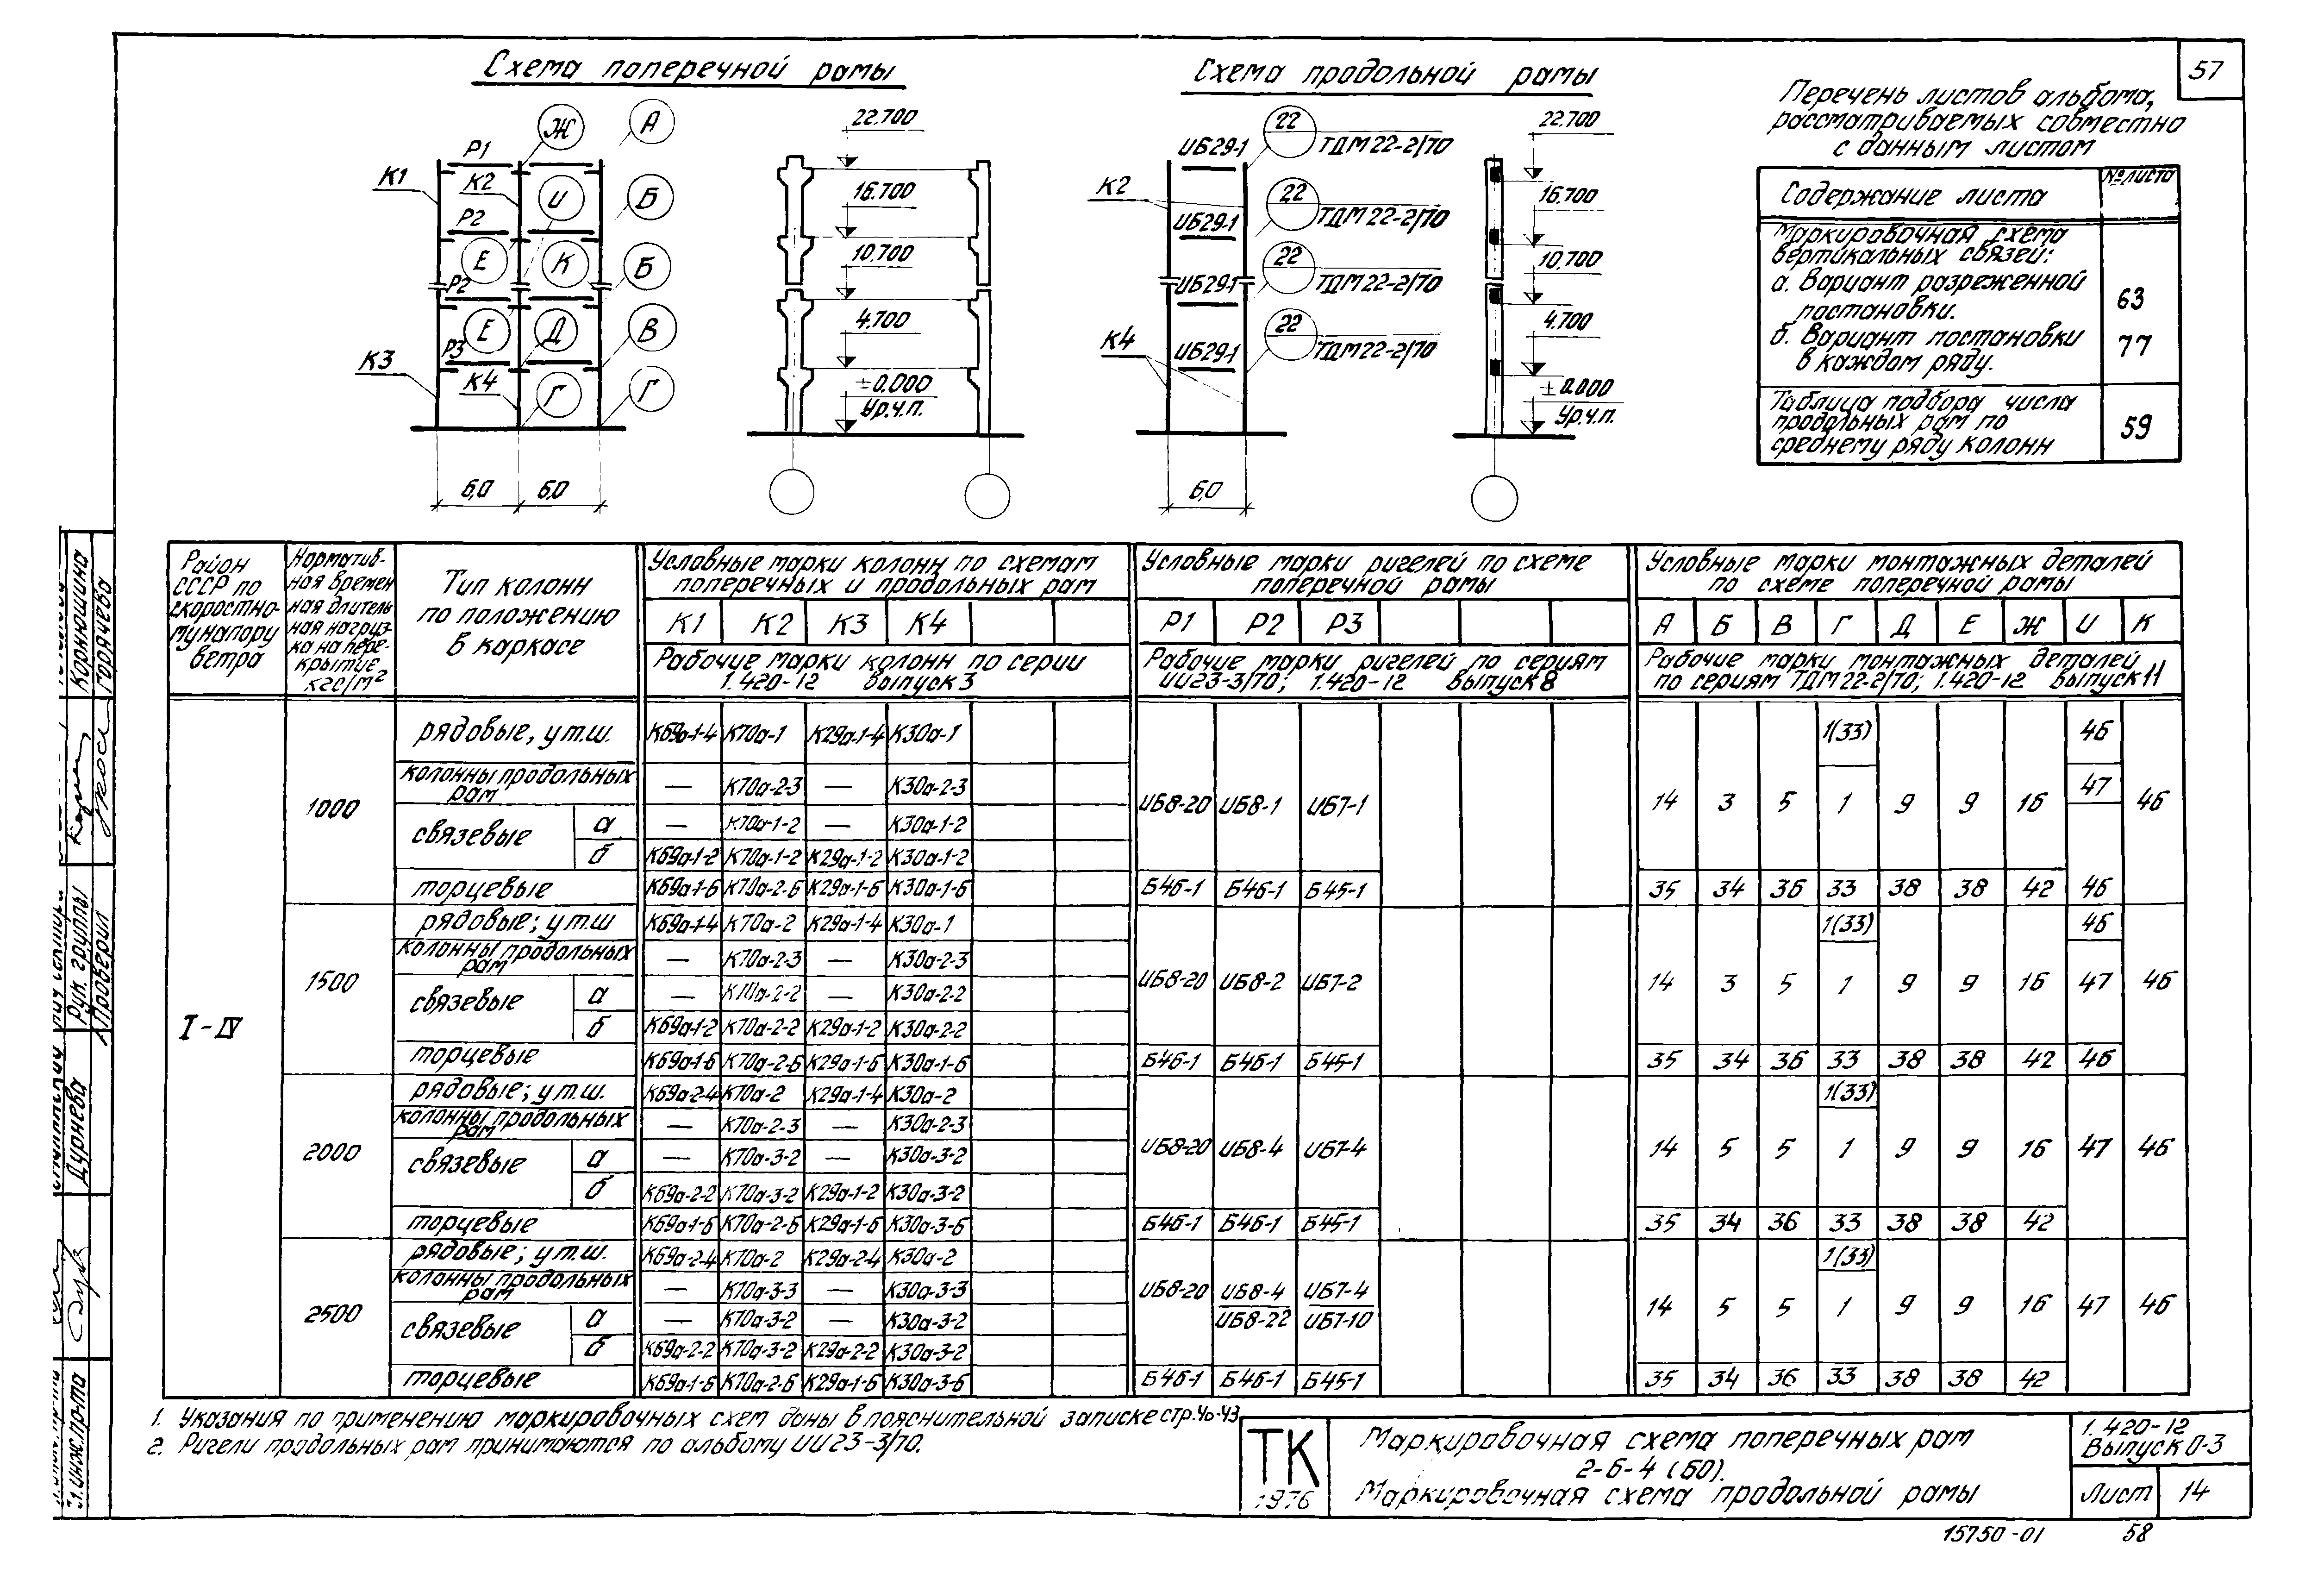 57
Схема поперечной рамы
Схема продольной рамы
Перечень листов альбома,
рассматриваемых совместно
с данным листом
Содержание листа №листа
Маркировочная схема
вертикальных связей:
а. Вариант разреженной
постановки. 63
б. Вариант постановки
в каждом ряду. 77
Таблица подбора числа
продольных рам по
среднему ряду колонн 59
Ж А
Р1
К1 К2 И Б
Р2
Е К Б
Р2
Е Д В
Р3
К3 К4 Г Г
6,0 6,0
22.700
16.700
10.700
4.700
±0.000
Ур.ч.п.
ИБ29-1 22 ТДМ22-2/70
К2
ИБ29-1 22 ТДМ22-2/70
ИБ29-1 22 ТДМ22-2/70
К4
ИБ29-1 22 ТДМ22-2/70
6,0
22.700
16.700
10.700
4.700
±0.000
Ур.ч.п.
Район
СССР по
скоростно-
му напору
ветра
Норматив-
ная времен
ная длитель
ная нагруз-
ка на пере-
крытие
кгс/м²
Тип колонн
по положению
в каркасе
Условные марки колонн по схемам
поперечных и продольных рам
К1 К2 К3 К4
Рабочие марки колонн по серии
1.420-12 выпуск 3
Условные марки ригелей по схеме
поперечной рамы
Р1 Р2 Р3
Рабочие марки ригелей по сериям
ИИ23-3/70; 1.420-12 выпуск 8
Условные марки монтажных деталей
по схеме поперечной рамы
А Б В Г Д Е Ж И К
Рабочие марки монтажных деталей
по сериям ТДМ22-2/70; 1.420-12 выпуск 11
I-IV
1000
рядовые, у т.ш. К69а-1-4 К70а-1 К29а-1-4 К30а-1 1(33) 46
колонны продольных
рам — К70а-2-3 — К30а-2-3 47
ИБ8-20 ИБ8-1 ИБ7-1 14 3 5 1 9 9 16 46
связевые а — К70а-1-2 — К30а-1-2
б К69а-1-2 К70а-1-2 К29а-1-2 К30а-1-2
торцевые К69а-1-6 К70а-2-6 К29а-1-6 К30а-1-6 Б46-1 Б46-1 Б45-1 35 34 36 33 38 38 42 46
1500
рядовые; у т.ш К69а-1-4 К70а-2 К29а-1-4 К30а-1 1(33) 46
колонны продольных
рам — К70а-2-3 — К30а-2-3
ИБ8-20 ИБ8-2 ИБ7-2 14 3 5 1 9 9 16 47 46
связевые а — К70а-2-2 — К30а-2-2
б К69а-1-2 К70а-2-2 К29а-1-2 К30а-2-2
торцевые К69а-1-6 К70а-2-6 К29а-1-6 К30а-1-6 Б46-1 Б46-1 Б45-1 35 34 36 33 38 38 42 46
2000
рядовые; у т.ш. К69а-2-4 К70а-2 К29а-1-4 К30а-2 1(33)
колонны продольных
рам — К70а-2-3 — К30а-2-3
ИБ8-20 ИБ8-4 ИБ7-4 14 5 5 1 9 9 16 47 46
связевые а — К70а-3-2 — К30а-3-2
б К69а-2-2 К70а-3-2 К29а-1-2 К30а-3-2
торцевые К69а-1-6 К70а-2-6 К29а-1-6 К30а-3-6 Б46-1 Б46-1 Б45-1 35 34 36 33 38 38 42
2500
рядовые; у т.ш. К69а-2-4 К70а-2 К29а-2-4 К30а-2 1(33)
колонны продольных
рам — К70а-3-3 — К30а-3-3
ИБ8-20 ИБ8-4 ИБ7-4 14 5 5 1 9 9 16 47 46
ИБ8-22 ИБ7-10
связевые а — К70а-3-2 — К30а-3-2
б К69а-2-2 К70а-3-2 К29а-2-2 К30а-3-2
торцевые К69а-1-6 К70а-2-6 К29а-1-6 К30а-3-6 Б46-1 Б46-1 Б45-1 35 34 36 33 38 38 42
1. Указания по применению маркировочных схем даны в пояснительной записке стр.40-43
2. Ригели продольных рам принимаются по альбому ИИ23-3/70.
ТК
1976
Маркировочная схема поперечных рам
2-6-4 (60).
Маркировочная схема продольной рамы
1.420-12
Выпуск 0-3
Лист 14
15750-01 58
Корнюшина
Горячева
Рук. группы
Проверил
Дуонева
Гл.инж.пр-та